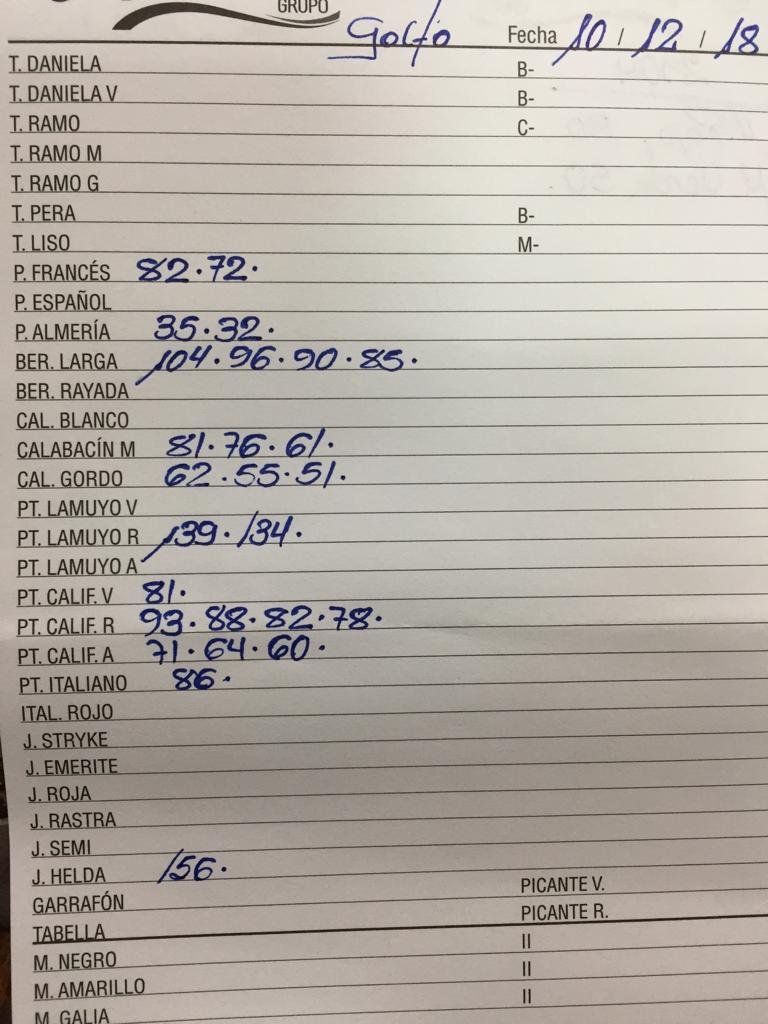 GRUPO
Golfo Fecha 10 / 12 / 18
T. DANIELA B-
T. DANIELA V B-
T. RAMO C-
T. RAMO M
T. RAMO G
T. PERA B-
T. LISO M-
P. FRANCÉS 82.72.
P. ESPAÑOL
P. ALMERÍA 35.32.
BER. LARGA 104.96.90.85.
BER. RAYADA
CAL. BLANCO
CALABACÍN M 81.76.61.
CAL. GORDO 62.55.51.
PT. LAMUYO V
PT. LAMUYO R 139.134.
PT. LAMUYO A
PT. CALIF. V 81.
PT. CALIF. R 93.88.82.78.
PT. CALIF. A 71.64.60.
PT. ITALIANO 86.
ITAL. ROJO
J. STRYKE
J. EMERITE
J. ROJA
J. RASTRA
J. SEMI
J. HELDA 156.
GARRAFÓN PICANTE V.
TABELLA PICANTE R.
M. NEGRO II
M. AMARILLO II
M. GALIA II